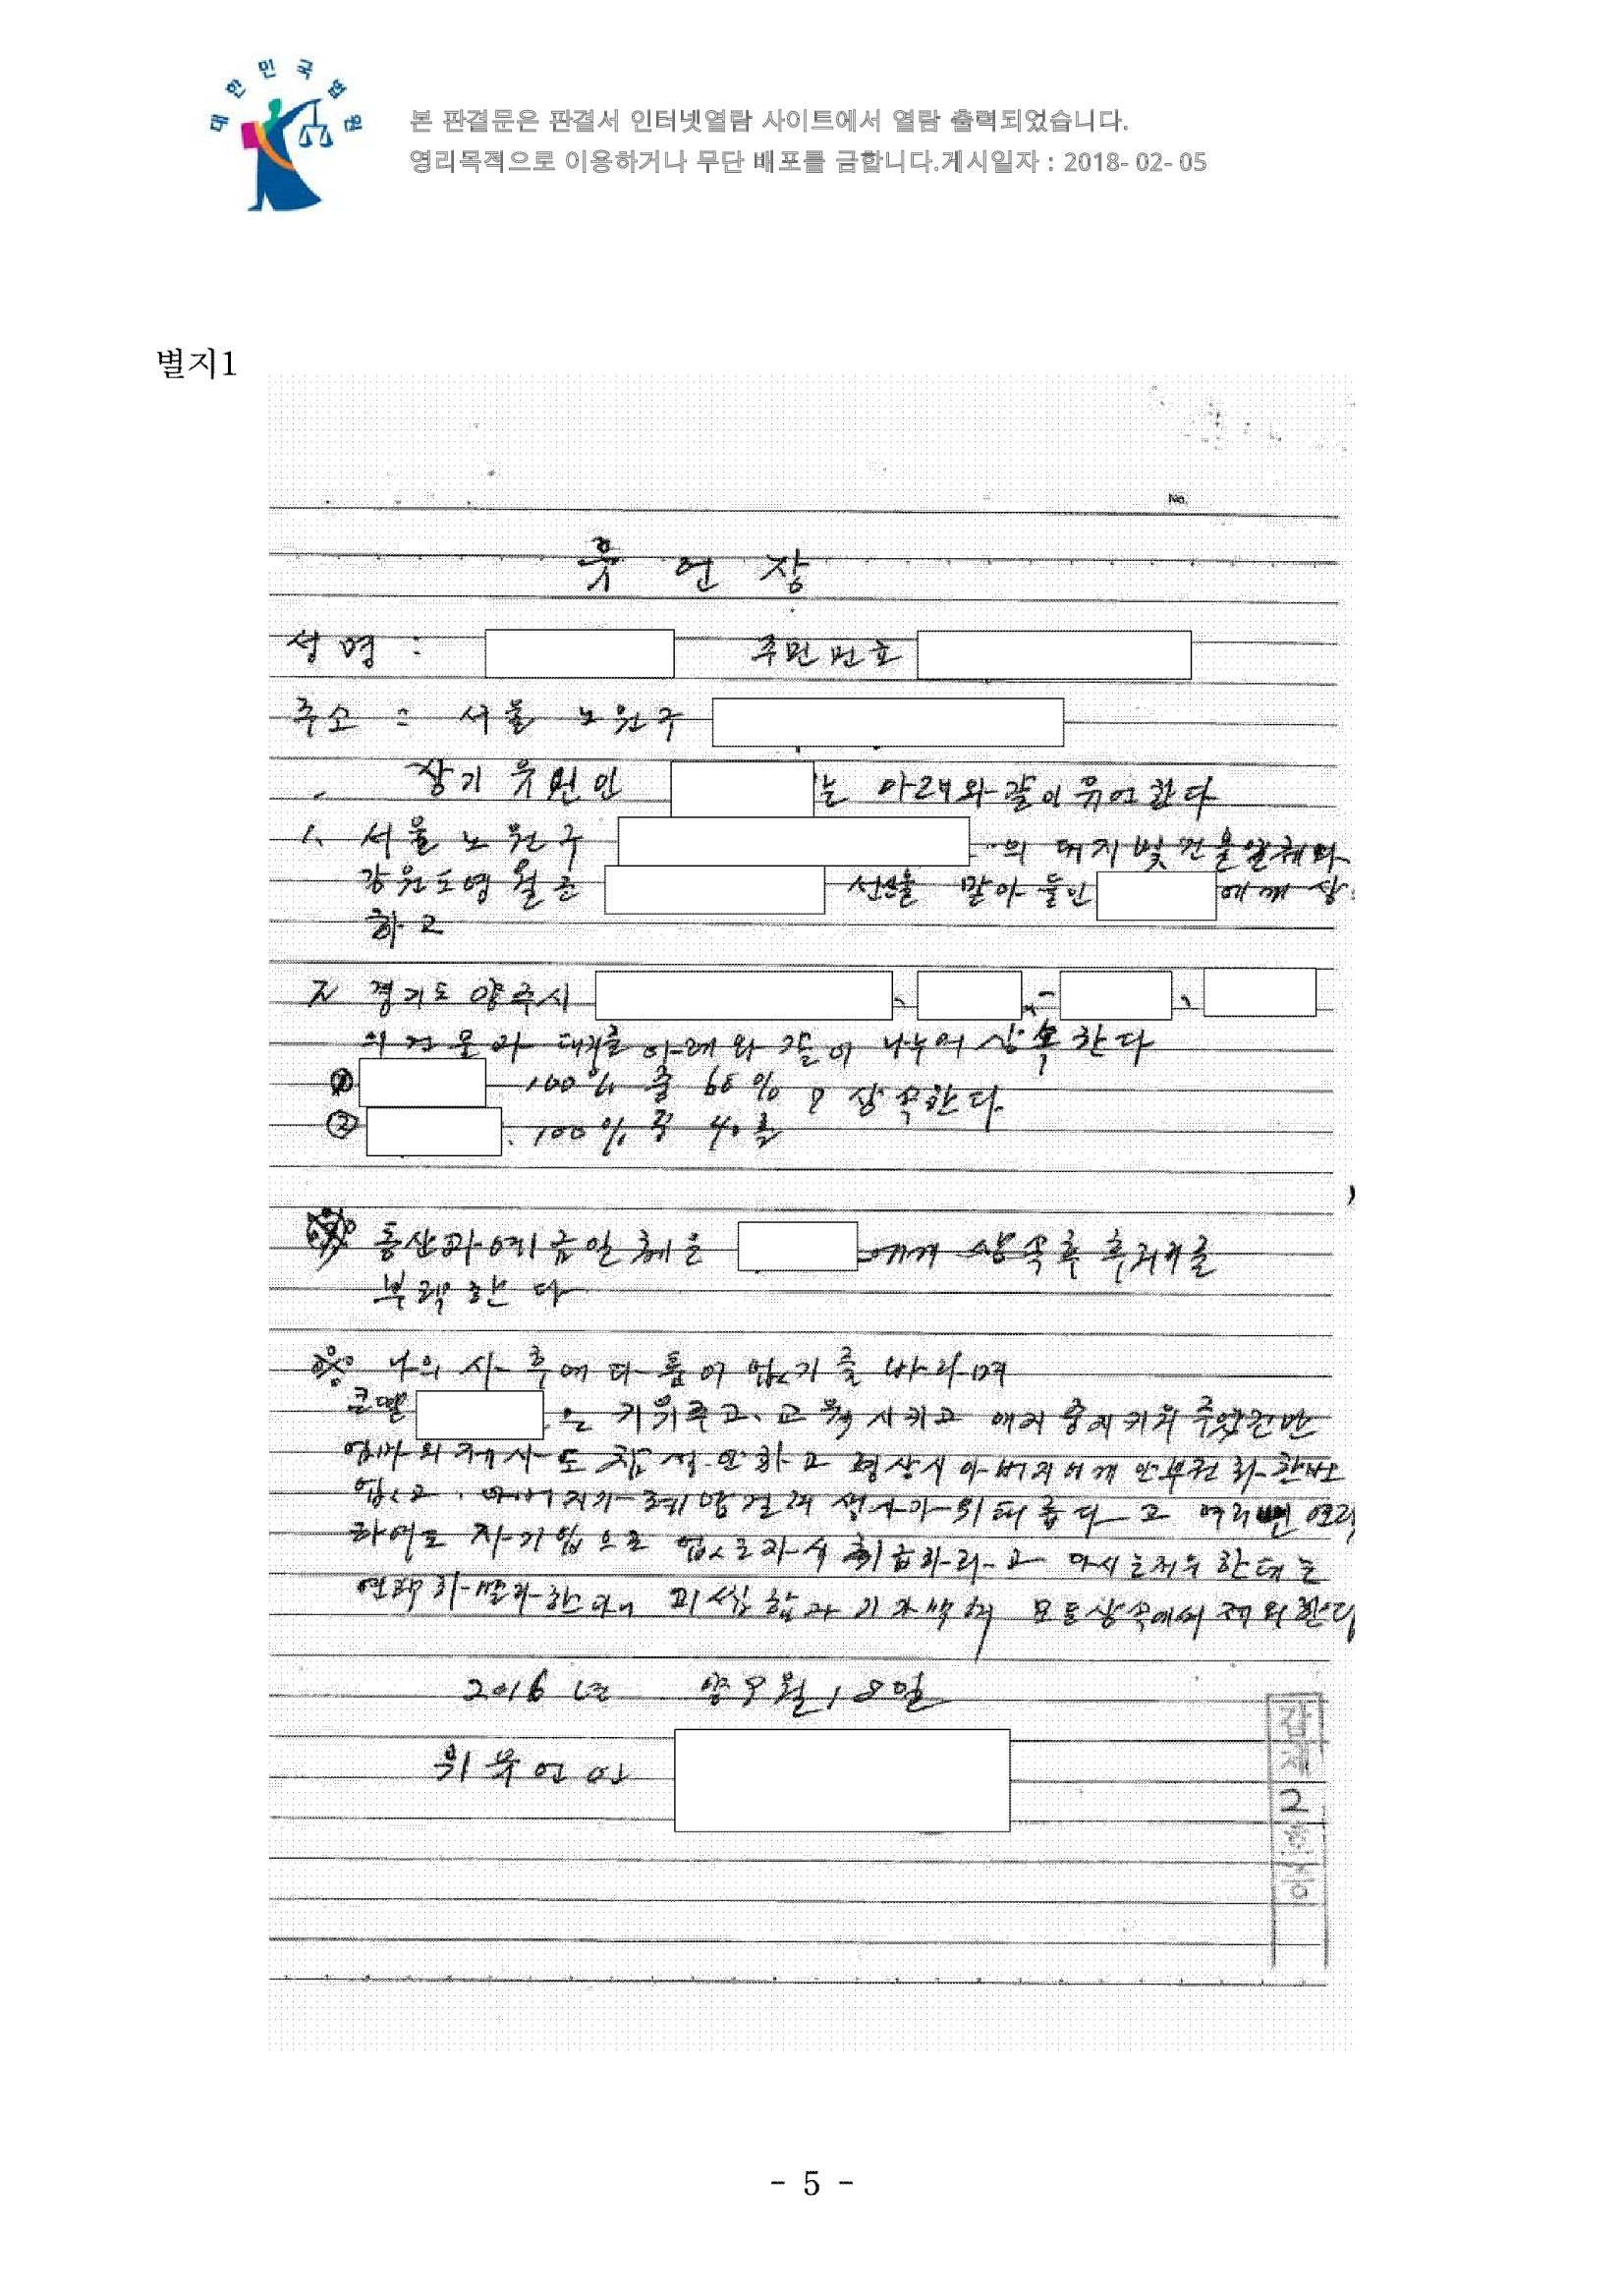 대한민국법원
본 판결문은 판결서 인터넷열람 사이트에서 열람 출력되었습니다.
영리목적으로 이용하거나 무단 배포를 금합니다.게시일자 : 2018-02-05
별지1
No.
윳 언 장
성 명 : 주민번호
주소 : 서울 노원구
상기 윳언인 는 아래와 같이 유언 한다
1. 서울 노원구 의 대지 및 건물일체와
강원도 영월군 선산을 맏아들인 에게 상
하고
2. 경기도 양주시
의 건물과 대지를 아래와 같이 나누어 상속 한다
① 100% 중 60% 상속한다
② 100% 중 40를
동산과 예금일체은 에게 상속후
부탁한다
나의 사후에 다툼이 없기를 바라며
큰딸 은 키워주고, 교육시키고 애지중지키워 주었건만
엄마의 제사도 참석안하고 평상시 아버지에게 안부전화 한번
없고,
하여도 자기입으로 없는자식 취급하라고
모든상속에서 제외한다
2016년 양 8월 18일
위 유언인
갑제2호증
- 5 -